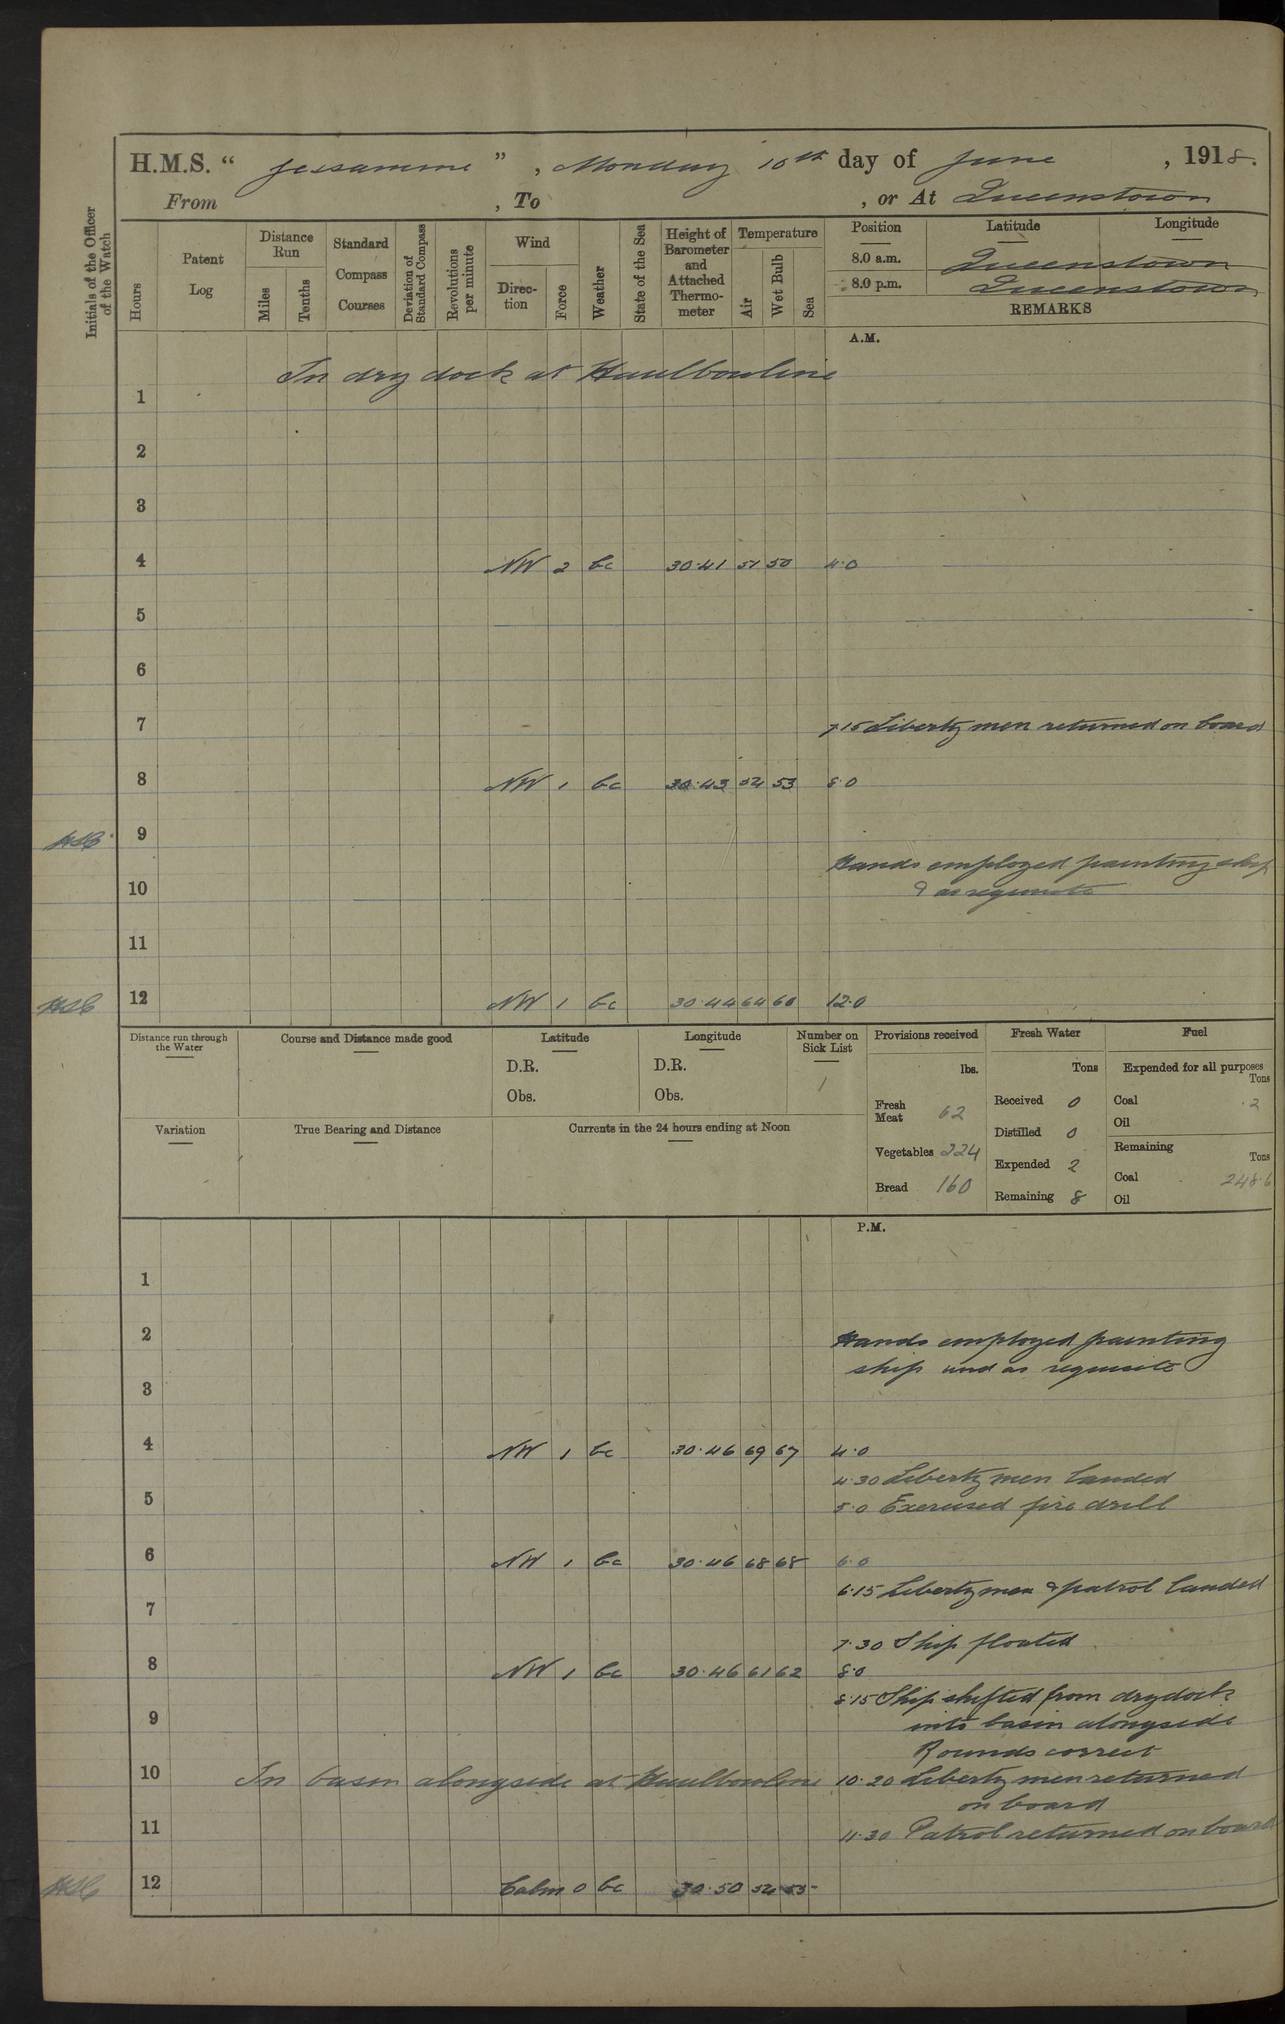 H.M.S. “ Jessamine ” , Monday 10th day of June , 1918.
From , To , or At Queenstown
Initials of the Officer of the Watch
Hours
Patent Log
Distance Run
Miles
Tenths
Standard Compass Courses
Deviation of Standard Compass
Revolutions per minute
Wind
Direc-tion
Force
Weather
State of the Sea
Height of Barometer and Attached Thermo-meter
Temperature
Air
Wet Bulb
Sea
Position Latitude Longitude
8.0 a.m. Queenstown
8.0 p.m. Queenstown
REMARKS
A.M.
In dry dock at Haulbowline
1
2
3
4 NW 2 bc 30.41 51 50 4.0
5
6
7 7.15 Liberty men returned on board
8 NW 1 bc 30.43 54 53 8.0
9
Hands employed painting ship
10 & as requisite
11
12 NW 1 bc 30.44 64 60 12.0
Distance run through the Water
Course and Distance made good
Latitude
D.R.
Obs.
Longitude
D.R.
Obs.
Number on Sick List
1
Provisions received
lbs.
Fresh Meat 62
Vegetables 224
Bread 160
Fresh Water
Tons
Received 0
Distilled 0
Expended 2
Remaining 8
Fuel
Expended for all purposes
Tons
Coal .2
Oil
Remaining
Tons
Coal 248.6
Oil
Variation
True Bearing and Distance
Currents in the 24 hours ending at Noon
P.M.
1
2 Hands employed painting
ship and as requisite
3
4 NW 1 bc 30.46 69 67 4.0
4.30 Liberty men landed
5 5.0 Exercised fire drill
6 NW 1 bc 30.46 68 68 6.0
6.15 Liberty men & patrol landed
7
7.30 Ship floated
8 NW 1 bc 30.46 61 62 8.0
8.15 Ship shifted from dry dock
9 into basin alongside
Rounds correct
10 In basin alongside at Haulbowline 10.20 Liberty men returned
on board
11 11.30 Patrol returned on board
12 Calm 0 bc 30.50 54 55